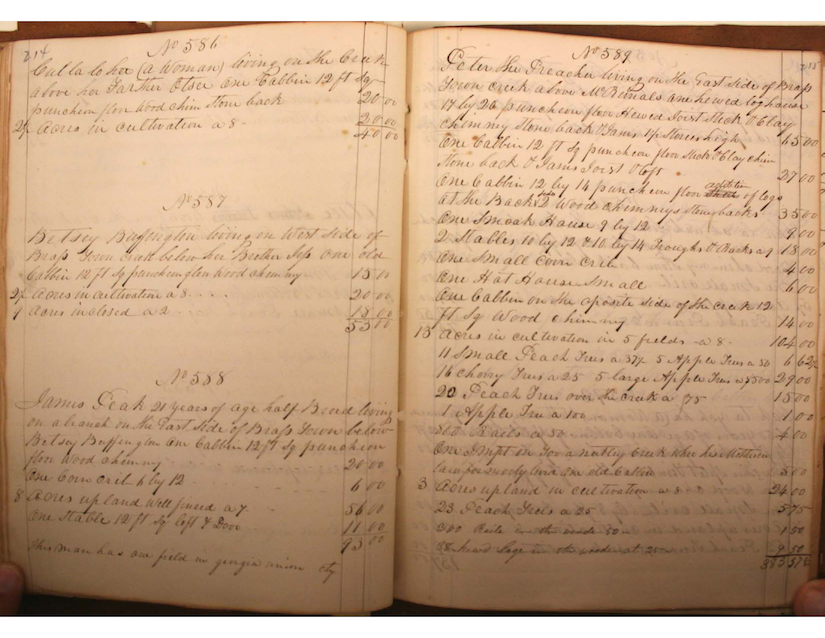 214
No 586
living on the Creek
above her Farther Otsee One Cabbin 12 ft Sq
puncheon floor Wood chim Stone back 20 00
2½ Acres in cultivation a 8 - 20 00
40 00
No 587
Betsey Buffington living on West Side of
Brass Town Creek below her Brother one old
Cabbin 12 ft Sq puncheon floor Wood chimny 15 0
2½ Acres in cultivation a 8 20 00
9 Acres inclosed a 2 18 00
53 00
No 588
James Peak 21 years of age half Breed living
on a branch on the East Side of Brass Town below
Betsey Buffington One Cabbin 12 ft Sq puncheon
floor Wood chimny 20 00
One Corn Crib 6 by 12 6 00
8 Acres up land well fenced a 7 56 00
One Stable 12 ft Sq loft & Door 11 00
93 00
This man has one field in georgia union cty
No 589
Peter the Preacher living on the East Side of Brass
Town Creek above one hewed log house
17 by 26 puncheon floor Hewed Joist Stick & Clay
chimny Stone back & Jams 1½ Stories high 65 00
One Cabbin 12 ft Sq puncheon floor Stick & Clay chim
Stone back & Jams Joist & loft 27 00
One Cabbin 12 by 14 puncheon floor addition of logs
at the Back 2 Wood chimnys Stone backs 35 00
One Smoak House 9 by 12 9 00
2 Stables 10 by 12 & 10 by 14 Troughs & Racks a 9 18 00
One Small Corn Crib 4 00
One Hot House Small 6 00
One Cabbin on the oposite Side of the creek 12
ft Sq Wood chimny 14 00
13 Acres in cultivation in 5 fields a 8 - 104 00
11 Small Peach Trees a 37½ 5 Apple Trees a 50 6 62½
16 Cherry Trees a 25 5 large Apple Trees a 500 29 00
20 Peach Trees over the Creek a 75 15 00
1 Apple Tree a 100 1 00
Rails a 50 4 00
One Creek Where his Mother in
law formerly lived one old Cabbin 5 00
3 Acres up land in cultivation a 8 24 00
23 Peach Trees a 25 5 75
300 Rails in the woods 50 1 50
38 in the woods at 25 9 50